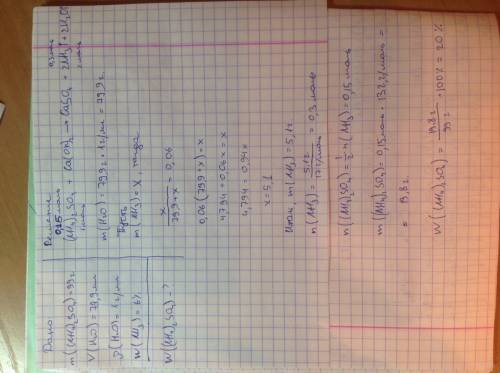 Дано
m((NH₄)₂SO₄)=99 г
V(H₂O)=79,9 мл
ρ(H₂O)=1 г/мл
W(NH₃)=6%
W((NH₄)₂SO₄)-?
Решение
0,15 моль 0,3 моль
(NH₄)₂SO₄ + Ca(OH)₂ → CaSO₄ + 2NH₃↑ + 2H₂O
1 моль 2 моль
m(H₂O)=79,9 г · 1 г/мл = 79,9 г.
Пусть
m(NH₃)=X, тогда
x/(79,9+x) = 0,06
0,06(79,9+x)=x
4,794+0,06x=x
4,794=0,94x
x=5,1
Итак, m(NH₃)=5,1 г
n(NH₃)= 5,1 г/17 г/моль = 0,3 моль
n((NH₄)₂SO₄)= 1/2 n(NH₃)=0,15 моль
m((NH₄)₂SO₄)=0,15 моль · 132 г/моль =
= 19,8 г.
W((NH₄)₂SO₄) = 19,8 г/99 г · 100% = 20%